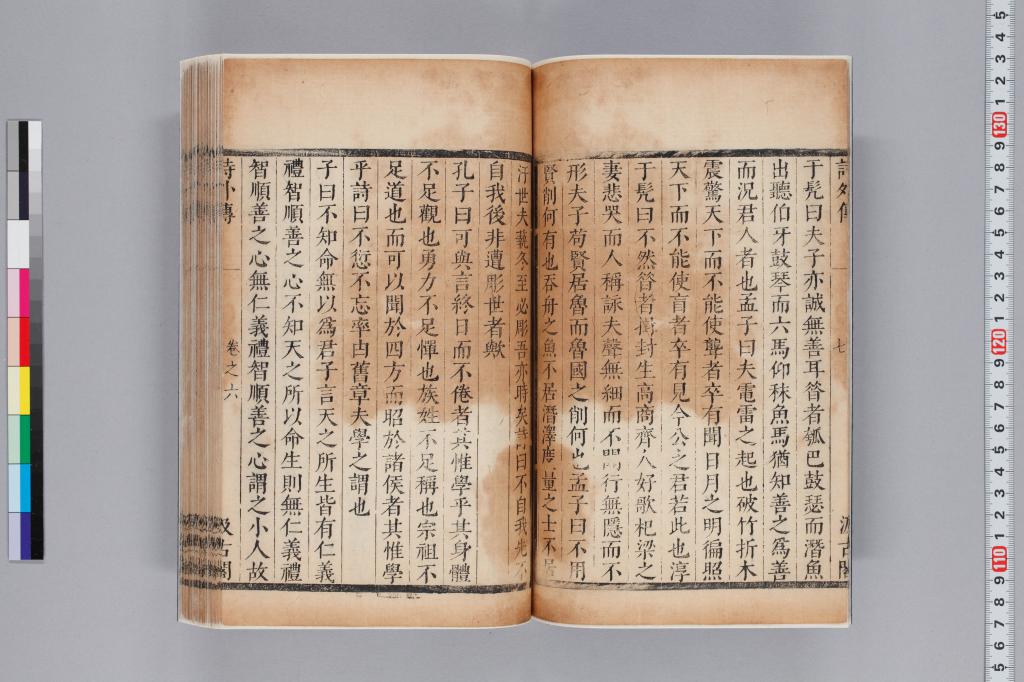 詩外傳
七
汲古閣
于髡曰夫子亦誠無善耳昝者瓠巴鼓瑟而潛魚
出聽伯牙鼓琴而六馬仰秣魚馬猶知善之為善
而況君人者也孟子曰夫電雷之起也破竹折木
震驚天下而不能使聾者卒有聞日月之明徧照
天下而不能使盲者卒有見今公之君若此也淳
于髡曰不然昝者揖封生高商齊人好歌杞梁之
妻悲哭而人稱詠夫聲無細而不聞行無隱而不
形夫子苟賢居魯而魯國之削何也孟子曰不用
賢削何有也吞舟之魚不居潛澤度量之士不居
汙世夫蓺冬至必彫吾亦時矣詩曰不自我先不
自我後非遭彫世者歟
孔子曰可與言終日而不倦者其惟學乎其身體
不足觀也勇力不足憚也族姓不足稱也宗祖不
足道也而可以聞於四方而昭於諸侯者其惟學
乎詩曰不愆不忘率由舊章夫學之謂也
子曰不知命無以爲君子言天之所生皆有仁義
禮智順善之心不知天之所以命生則無仁義禮
智順善之心無仁義禮智順善之心謂之小人故
詩外傳
卷之六
汲古閣